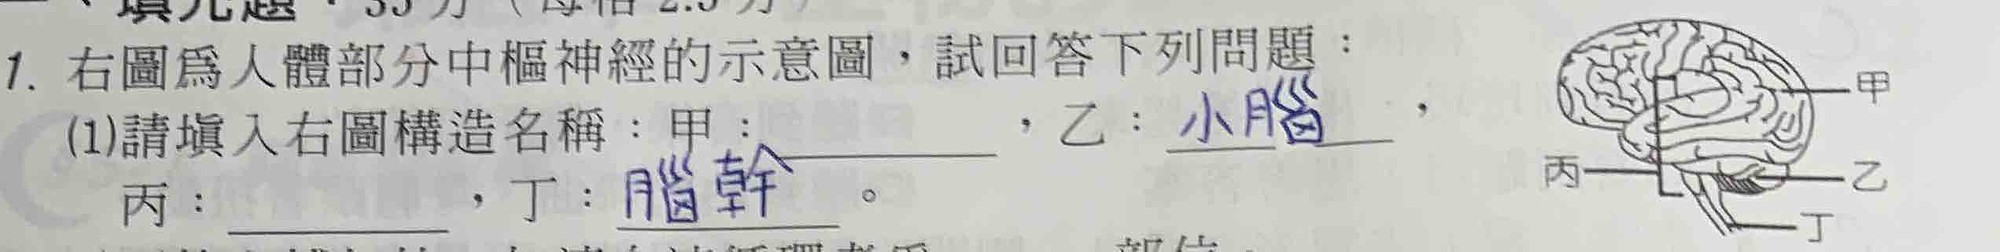 、填充題：35分（每格2.5分）
1. 右圖為人體部分中樞神經的示意圖，試回答下列問題：
(1)請填入右圖構造名稱：甲：　　　　，乙：小腦，
丙：　　　　，丁：腦幹。
甲
丙
乙
丁
部位